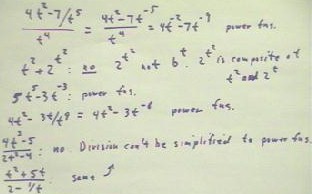 (4t² - 7/t⁵)/t⁴ = (4t² - 7t⁻⁵)/t⁴ = 4t⁻² - 7t⁻⁹ power fns.
t² + 2^t²: no 2^t² not b^t. 2^t² is composite of t² and 2^t
5t⁵ - 3t⁻³: power fns.
4t² - 3t/t⁹ = 4t² - 3t⁻⁸ power fns.
(4t³ - 5)/(2t³ - 4): no. Division can't be simplified to power fns.
(t² + 5t)/(2 - 1/t): same ↑